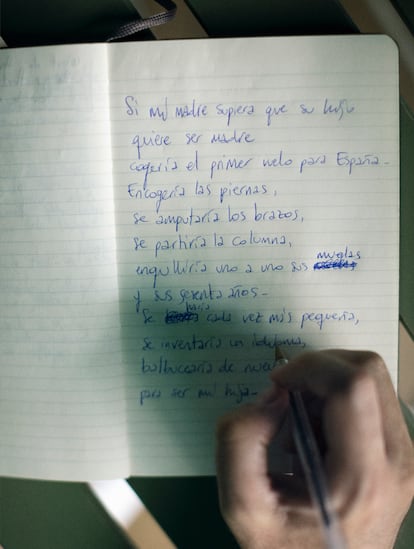 Si mi madre supiera que su hijo
quiere ser madre
cogería el primer vuelo para España.
Encogería las piernas,
se amputaría los brazos,
se partiría la columna,
engulliría uno a uno sus
muelas
y sus sesenta años.
Se haría cada vez más pequeña,
se inventaría un idioma,
balbucearía de nuevo
para ser mi hija.